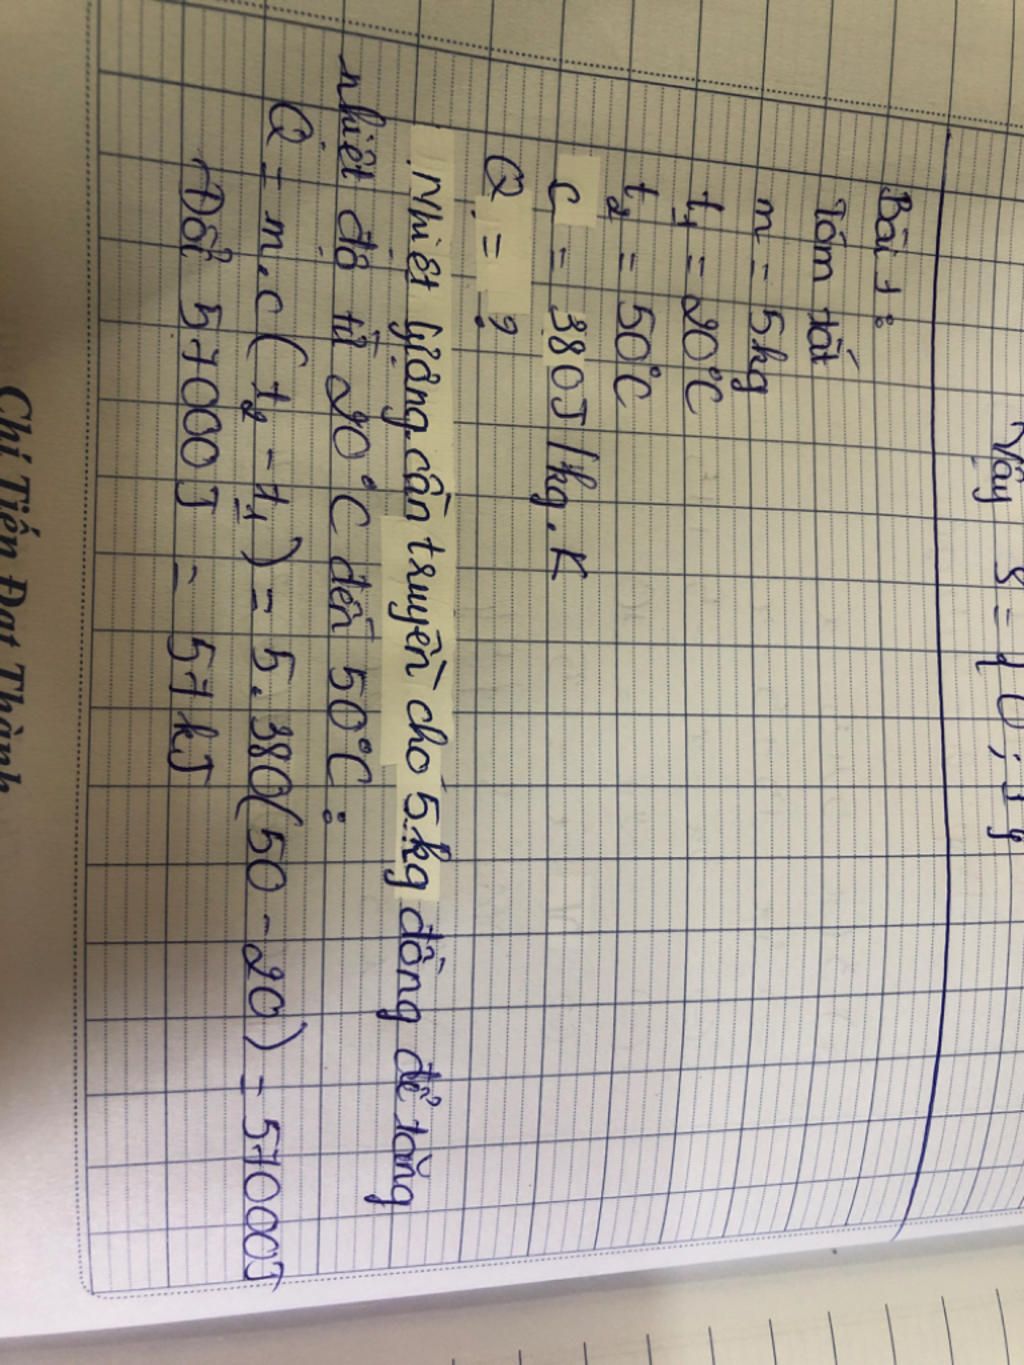 Vậy
Bài 1:
Tóm tắt
m = 5kg
t₁ = 20°C
t₂ = 50°C
C = 380J/kg.K
Q = ?
Nhiệt lượng cần truyền cho 5kg đồng để tăng
nhiệt độ từ 20°C đến 50°C:
Q = m.c(t₂ - t₁) = 5.380(50 - 20) = 57000J
Đổi 57000J = 57kJ
Chí Tiến Đạt Thành